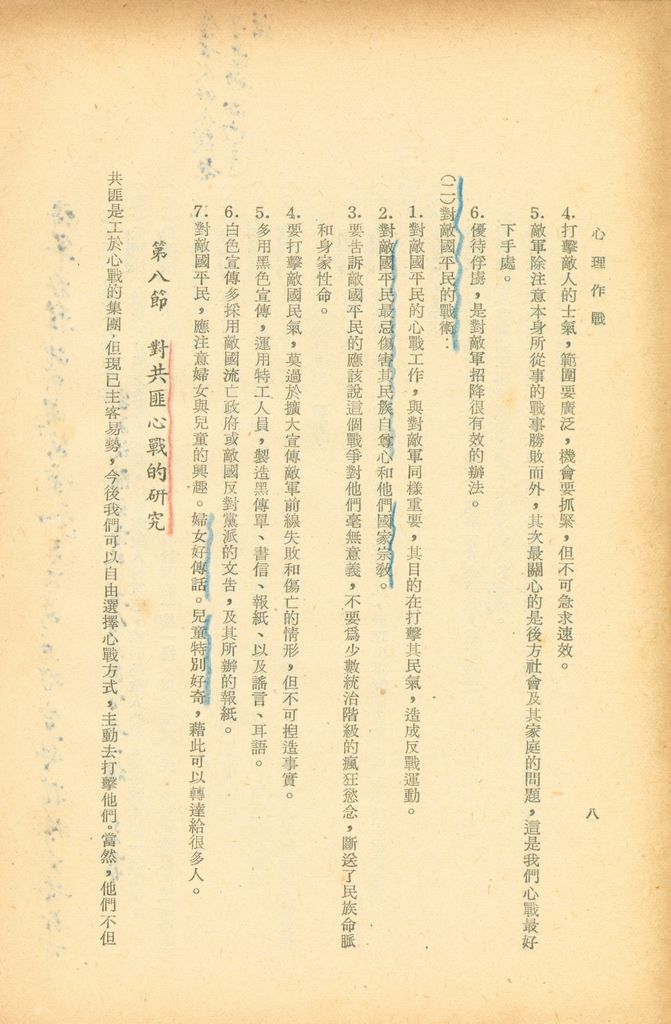 心理作戰
八
4.打擊敵人的士氣，範圍要廣泛，機會要抓緊，但不可急求速效。
5.敵軍除注意本身所從事的戰事勝敗而外，其次最關心的是後方社會及其家庭的問題，這是我們心戰最好
下手處。
6.優待俘虜，是對敵軍招降很有效的辦法。
(二)對敵國平民的戰術：
1.對敵國平民的心戰工作，與對敵軍同樣重要，其目的在打擊其民氣，造成反戰運動。
2.對敵國平民最忌傷害其民族自尊心和他們國家宗教。
3.要告訴敵國平民的應該說這個戰爭對他們毫無意義，不要爲少數統治階級的瘋狂慾念，斷送了民族命脈
和身家性命。
4.要打擊敵國民氣，莫過於擴大宣傳敵軍前線失敗和傷亡的情形，但不可揑造事實。
5.多用黑色宣傳，運用特工人員，製造黑傳單、書信、報紙、以及謠言、耳語。
6.白色宣傳多採用敵國流亡政府或敵國反對黨派的文告，及其所辦的報紙。
7.對敵國平民，應注意婦女與兒童的興趣。婦女好傳話。兒童特別好奇，藉此可以轉達給很多人。
第八節　對共匪心戰的研究
共匪是工於心戰的集團，但現已主客易勢，今後我們可以自由選擇心戰方式，主動去打擊他們。當然，他們不但